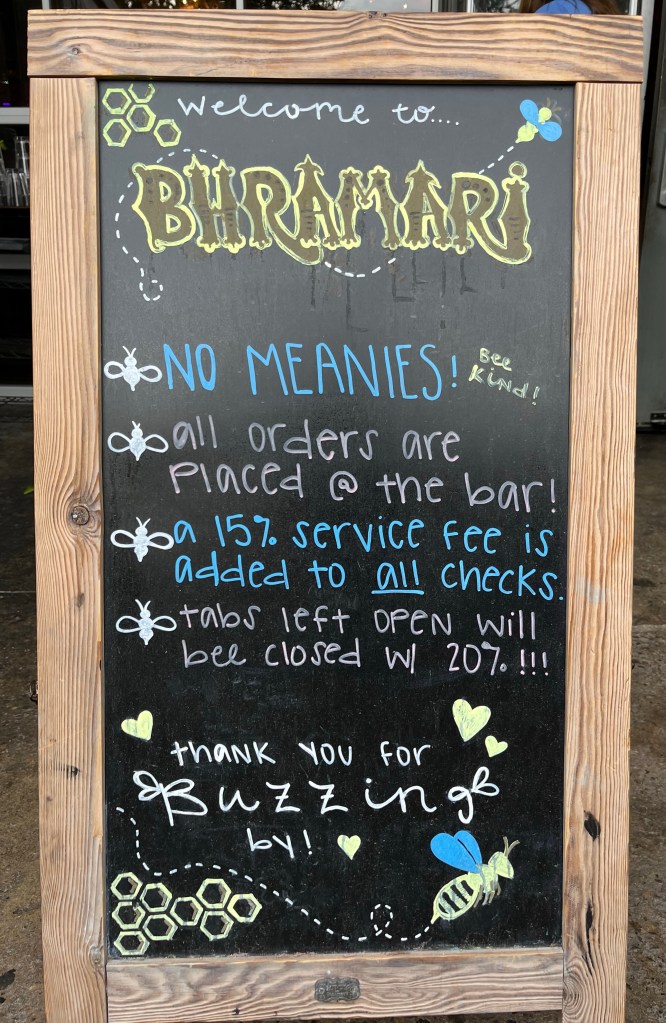 welcome to....
BHRAMARi
NO MEANIES!
Bee
Kind!
all orders are
placed @ the bar!
a 15% service fee is
added to all checks.
tabs left open will
bee closed w/ 20%!!!
thank you for
Buzzing
by!